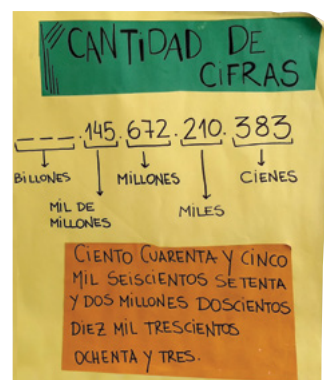 CANTIDAD DE
CIFRAS
_ _ _ . 145 . 672 . 210 . 383
BILLONES
MILLONES
CIENES
MIL DE
MILLONES
MILES
CIENTO CUARENTA Y CINCO
MIL SEISCIENTOS SETENTA
Y DOS MILLONES DOSCIENTOS
DIEZ MIL TRESCIENTOS
OCHENTA Y TRES.